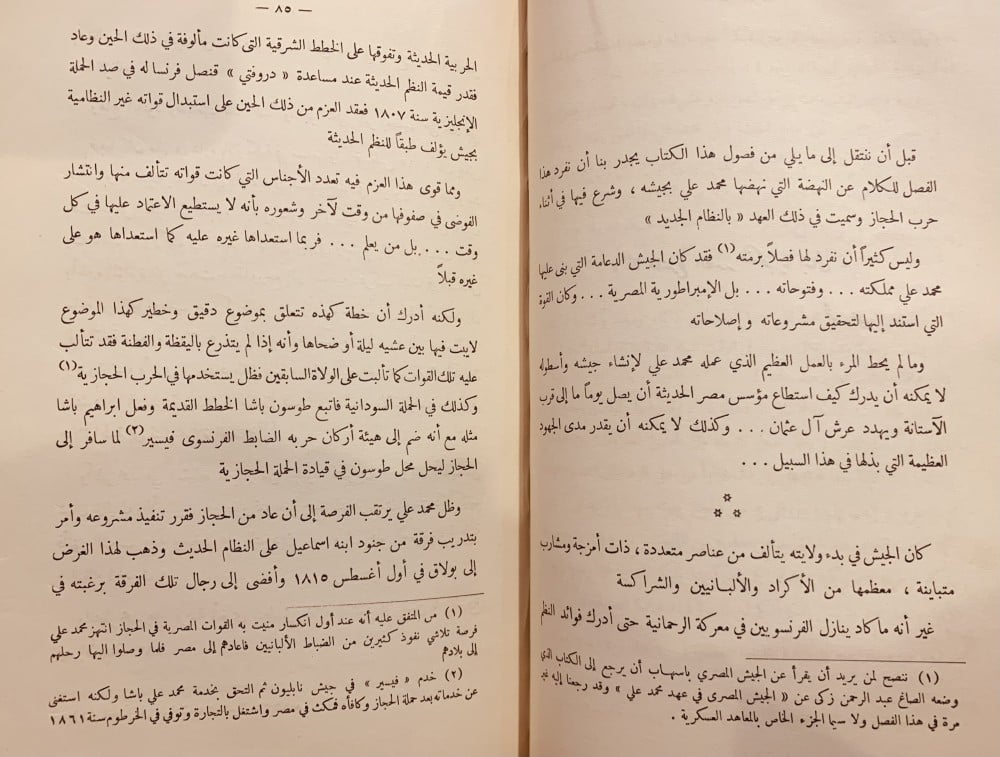 قبل أن ننتقل إلى ما يلي من فصول هذا الكتاب يجدر بنا أن نفرد هذا
الفصل للكلام عن النهضة التي نهضها محمد علي بجيشه ، وشرع فيها في أثناء
حرب الحجاز وسميت في ذلك العهد « بالنظام الجديد »
وليس كثيراً أن نفرد لها فصلاً برمته (١) فقد كان الجيش الدعامة التي بنى عليها
محمد علي مملكته ... وفتوحاته ... بل الإمبراطورية المصرية ... وكان القوة
التي استند إليها لتحقيق مشروعاته وإصلاحاته
وما لم يحط المرء بالعمل العظيم الذي عمله محمد علي لإنشاء جيشه وأسطوله
لا يمكنه أن يدرك كيف استطاع مؤسس مصر الحديثة أن يصل يوماً ما إلى قرب
الآستانة ويهدد عرش آل عثمان ... وكذلك لا يمكنه أن يقدر مدى الجهود
العظيمة التي بذلها في هذا السبيل ...
كان الجيش في بدء ولايته يتألف من عناصر متعددة ، ذات أمزجة ومشارب
متباينة ، معظمها من الأكراد والألبانيين والشراكسة
غير أنه ما كاد ينازل الفرنسويين في معركة الرحمانية حتى أدرك فوائد النظم
(١) ننصح لمن يريد أن يقرأ عن الجيش المصري باسهاب أن يرجع إلى الكتاب الذي
وضعه الصاغ عبد الرحمن زكى عن « الجيش المصرى في عهد محمد علي » وقد رجعنا إليه غير
مرة في هذا الفصل ولا سيما الجزء الخاص بالمعاهد العسكرية .
— ٨٥ —
الحربية الحديثة وتفوقها على الخطط الشرقية التى كانت مألوفة في ذلك الحين وعاد
فقدر قيمة النظم الحديثة عند مساعدة « دروفتي » قنصل فرنسا له في صد الحملة
الإنجليزية سنة ١٨٠٧ فعقد العزم من ذلك الحين على استبدال قواته غير النظامية
بجيش يؤلف طبقاً للنظم الحديثة
ومما قوى هذا العزم فيه تعدد الأجناس التي كانت قواته تتألف منها وانتشار
الفوضى في صفوفها من وقت لآخر وشعوره بأنه لا يستطيع الاعتماد عليها في كل
وقت .... بل من يعلم ... فربما استعداها غيره عليه كما استعداها هو على
غيره قبلاً
ولكنه أدرك أن خطة كهذه تتعلق بموضوع دقيق وخطير كهذا الموضوع
لايبت فيها بين عشيه ليلة أو ضحاها وأنه إذا لم يتذرع باليقظة والفطنة فقد تتألب
عليه تلك القوات كما تألبت على الولاة السابقين فظل يستخدمها في الحرب الحجازية (١)
وكذلك في الحملة السودانية فاتبع طوسون باشا الخطط القديمة وفعل ابراهيم باشا
مثله مع أنه ضم إلى هيئة أركان حربه الضابط الفرنسوى فيسير (٢) لما سافر إلى
الحجاز ليحل محل طوسون في قيادة الحملة الحجازية
وظل محمد علي يرتقب الفرصة إلى أن عاد من الحجاز فقرر تنفيذ مشروعه وأمر
بتدريب فرقة من جنود ابنه اسماعيل على النظام الحديث وذهب لهذا الغرض
إلى بولاق في أول أغسطس ١٨١٥ وأفضى إلى رجال تلك الفرقة برغبته في
(١) من المتفق عليه أنه عند أول انكسار منيت به القوات المصرية في الحجاز انتهز محمد علي
فرصة تلاشي نفوذ كثيرين من الضباط الألبانيين فأعادهم إلى مصر فلما وصلوا اليها رحلهم
إلى بلادهم
(٢) خدم « فيسير » في جيش نابليون ثم التحق بخدمة محمد علي باشا ولكنه استغنى
عن خدماته بعد حملة الحجاز وكافأه فمكث في مصر واشتغل بالتجارة وتوفي في الخرطوم سنة ١٨٦١